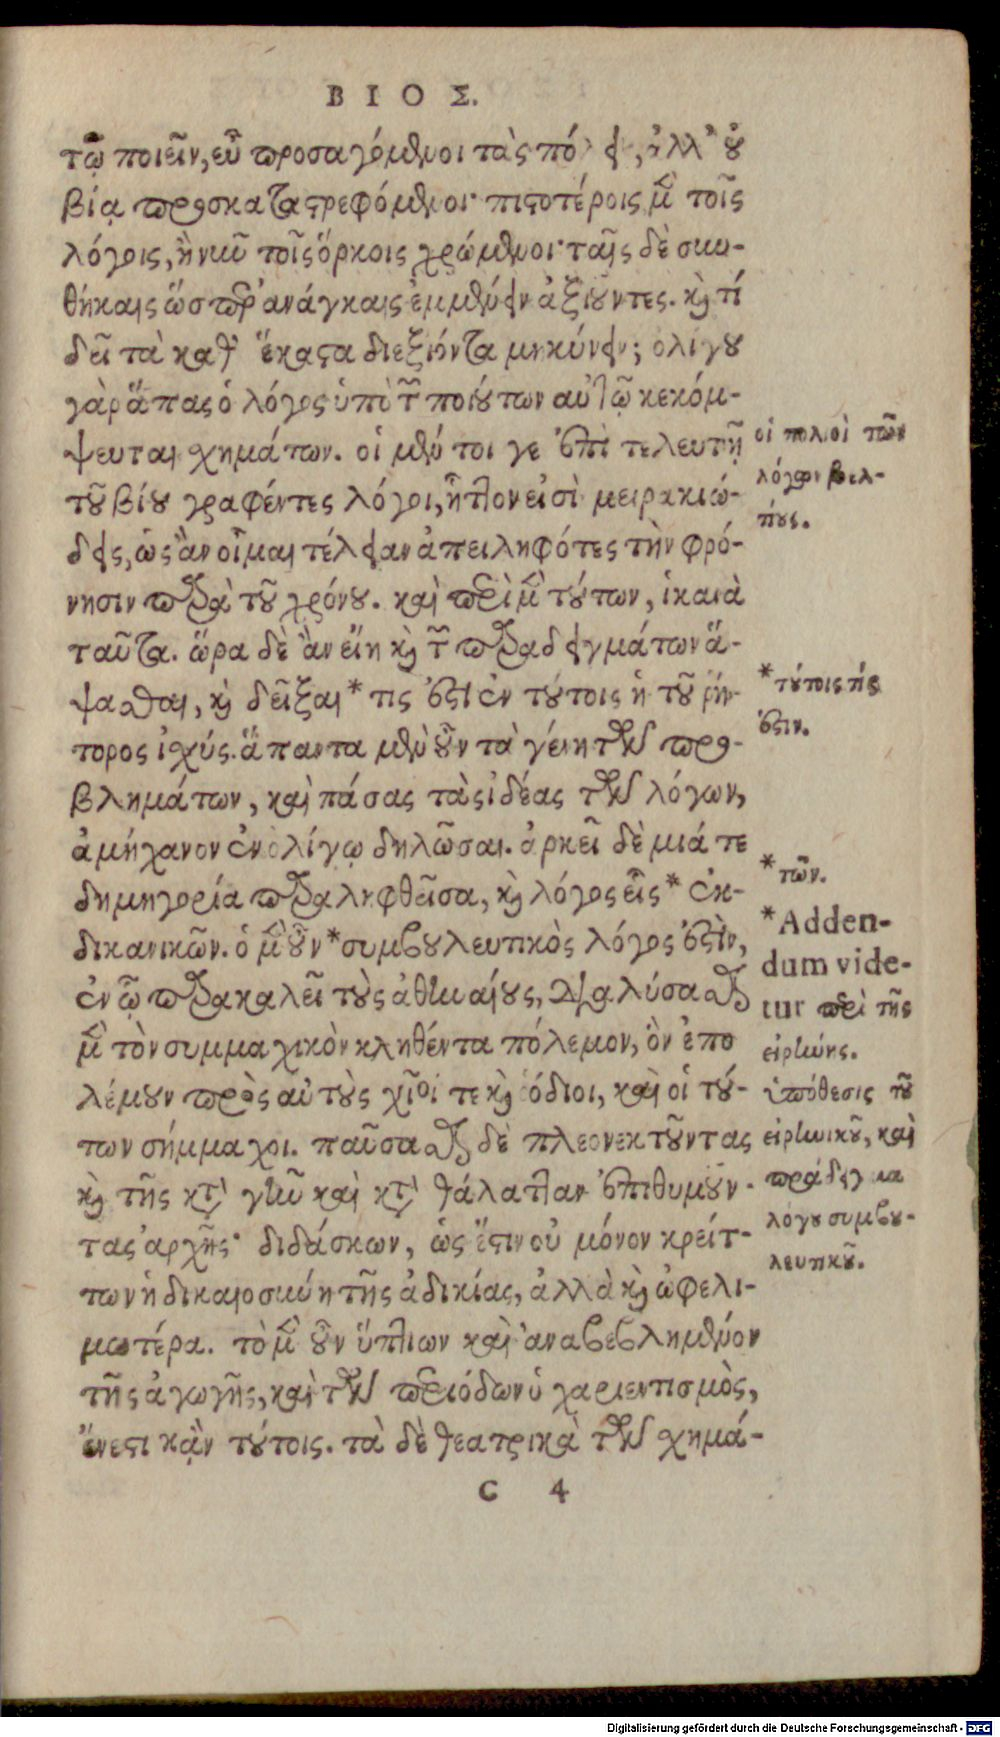 ΒΙΟΣ.
τῷ ποιεῖν, εὖ προσαγόμενοι τὰς πόλεις, ἀλλ' οὐ
βίᾳ προσκαταστρεφόμενοι· πιστοτέροις μὲν τοῖς
λόγοις, ἢ νῦν τοῖς ὅρκοις χρώμενοι· ταῖς δὲ συν-
θήκαις ὥσπερ ἀνάγκαις ἐμμένειν ἀξιοῦντες. καὶ τί
δεῖ τὰ καθ' ἕκαστα διεξιόντα μηκύνειν; ὀλίγου
γὰρ ἅπας ὁ λόγος ὑπὸ τῶν τοιούτων αὐτῷ κεκόμ-
ψευται σχημάτων. οἱ μέν τοι γε ἐπὶ τελευτῇ
τοῦ βίου γραφέντες λόγοι, ἧττον εἰσὶ μειρακιώ-
δεις, ὡς ἂν οἶμαι τέλειαν ἀπειληφότες τὴν φρό-
νησιν παρὰ τοῦ χρόνου. καὶ περὶ μὲν τούτων, ἱκανὰ
ταῦτα. ὥρα δὲ ἂν εἴη καὶ τῶν παραδειγμάτων ἅ-
ψασθαι, καὶ δεῖξαι * τις ἐστὶ ἐν τούτοις ἡ τοῦ ῥή-
τορος ἰσχύς. ἅπαντα μὲν οὖν τὰ γένη τῶν προ-
βλημάτων, καὶ πάσας τὰς ἰδέας τῶν λόγων,
ἀμήχανον ἐν ὀλίγῳ δηλῶσαι. ἀρκεῖ δὲ μιά τε
δημηγορία παραληφθεῖσα, καὶ λόγος εἷς * ἐκ
δικανικῶν. ὁ μὲν οὖν * συμβουλευτικὸς λόγος ἐστὶν,
ἐν ᾧ παρακαλεῖ τοὺς ἀθηναίους, διαλύσασθαι
μὲν τὸν συμμαχικὸν κληθέντα πόλεμον, ὃν ἐπο
λέμουν πρὸς αὐτοὺς χῖοί τε καὶ ῥόδιοι, καὶ οἱ τού-
των σήμμαχοι. παῦσασθαι δὲ πλεονεκτοῦντας
καὶ τῆς κατὰ γῆν καὶ κατὰ θάλατταν ἐπιθυμοῦν-
τας ἀρχῆς· διδάσκων, ὡς ἔστιν οὐ μόνον κρείτ-
των ἡ δικαιοσύνη τῆς ἀδικίας, ἀλλὰ καὶ ὠφελι-
μωτέρα. τὸ μὲν οὖν ὕπτιων καὶ ἀναβεβλημένον
τῆς ἀγωγῆς, καὶ τῶν περιόδων ὁ χαριεντισμὸς,
ἔνεστι κἂν τούτοις. τὰ δὲ θεατρικὰ τῶν σχημά-
C 4
οἱ πολιοὶ τῶν
λόγων βελ-
τίους.
* τούτοις τίς
ἐστιν.
* τῶν.
* Adden-
dum vide-
tur περὶ τῆς
εἰρήνης.
ὑπόθεσις τοῦ
εἰρηνικοῦ, καὶ
παράδειγμα
λόγου συμβου-
λευτικοῦ.
Digitalisierung gefördert durch die Deutsche Forschungsgemeinschaft - DFG